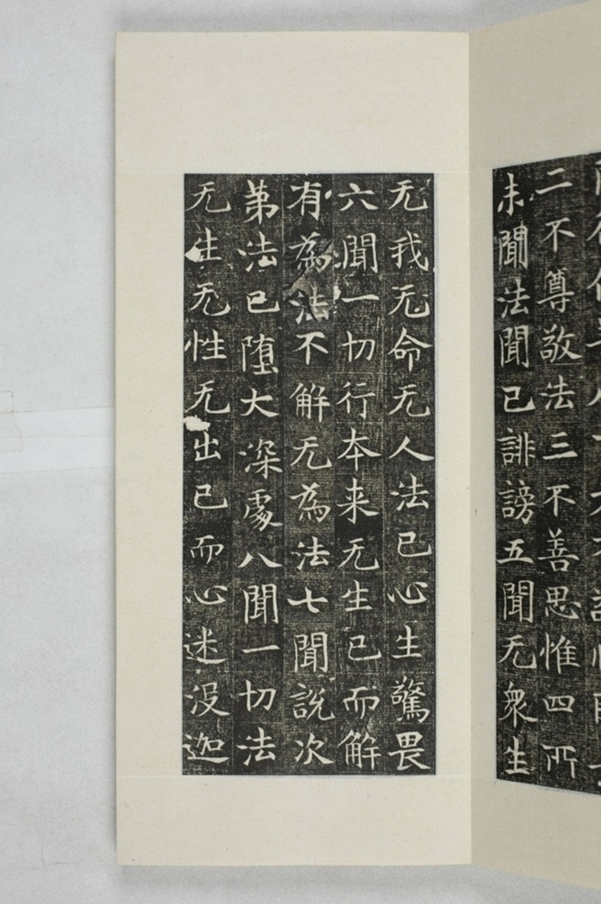 二不尊敬法三不善思惟四所
未聞法聞已誹謗五聞无衆生
无我无命无人法已心生驚畏
六聞一切行本来无生已而解
有為法不解无為法七聞說次
第法已堕大深處八聞一切法
无生无性无出已而心迷没迦